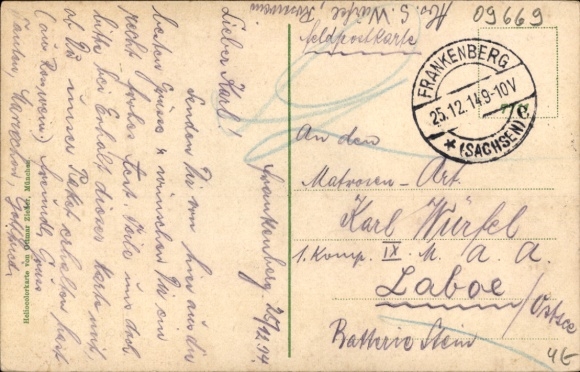 Abs. S. Würfel,
09669
Feldpostkarte
FRANKENBERG
25.12.14 9-10V
* (SACHSEN) C
An den
Matrosen-Art.
Karl Würfel
1. Komp. IX. M. A. A.
Laboe
/Ostsee
Batterie Stein
4G
Frankenberg 25/12.14.
Lieber Karl!
Senden Dir von hier aus die
besten Grüsse u. wünschen Dir ein
recht frohes Fest. Teile uns doch
bitte bei Erhalt dieser Karte mit
ob Du unser Paket erhalten hast
(aus Rosswein) Grüsse
Heliocolorkarte von Ottmar Zieher, München